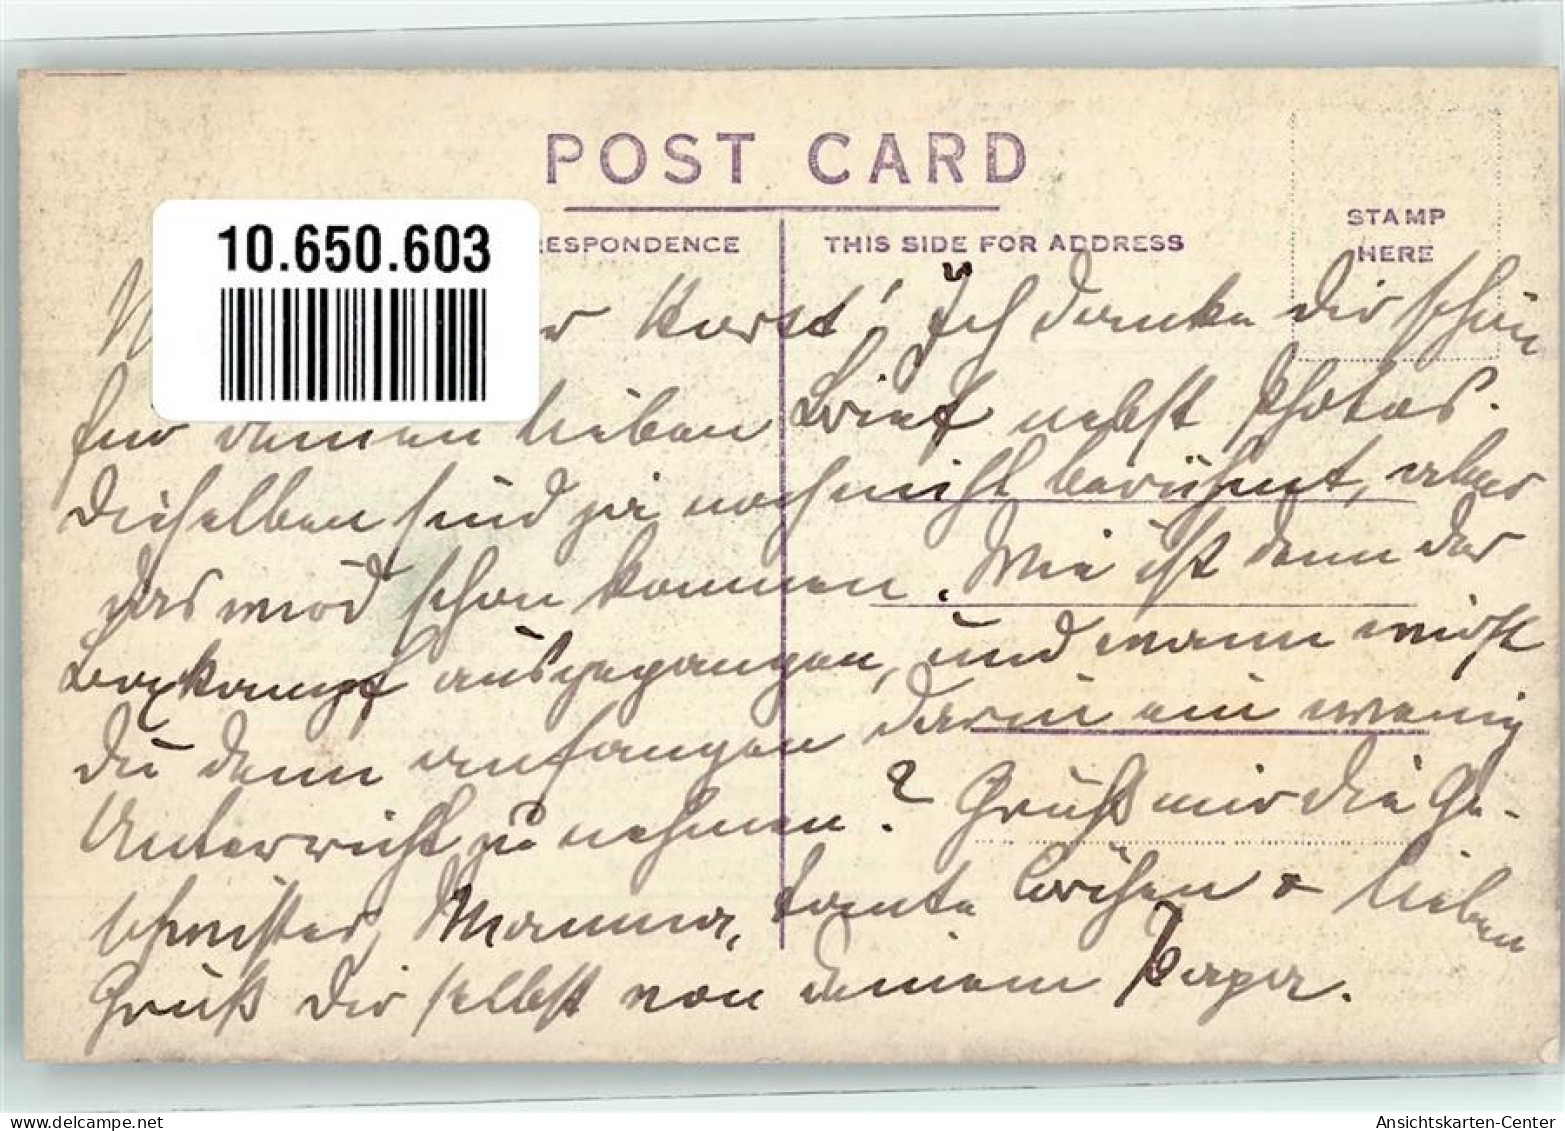 POST CARD
10.650.603
RESPONDENCE
THIS SIDE FOR ADDRESS
STAMP
HERE
M r Horst! Ich danke Dir schön
für deinen lieben Brief nebst Photos.
Dieselben sind ja noch nicht berühmt, aber
das wird schon kommen. Wie ist denn der
Boxkampf ausgegangen, und wann wirst
Du denn anfangen darin ein wenig
Unterricht zu nehmen? Grüß mir die Ge-
schwister, Mamma, Tante & lieben
Gruß Dir selbst von deinem Papa.
www.delcampe.net
Ansichtskarten-Center